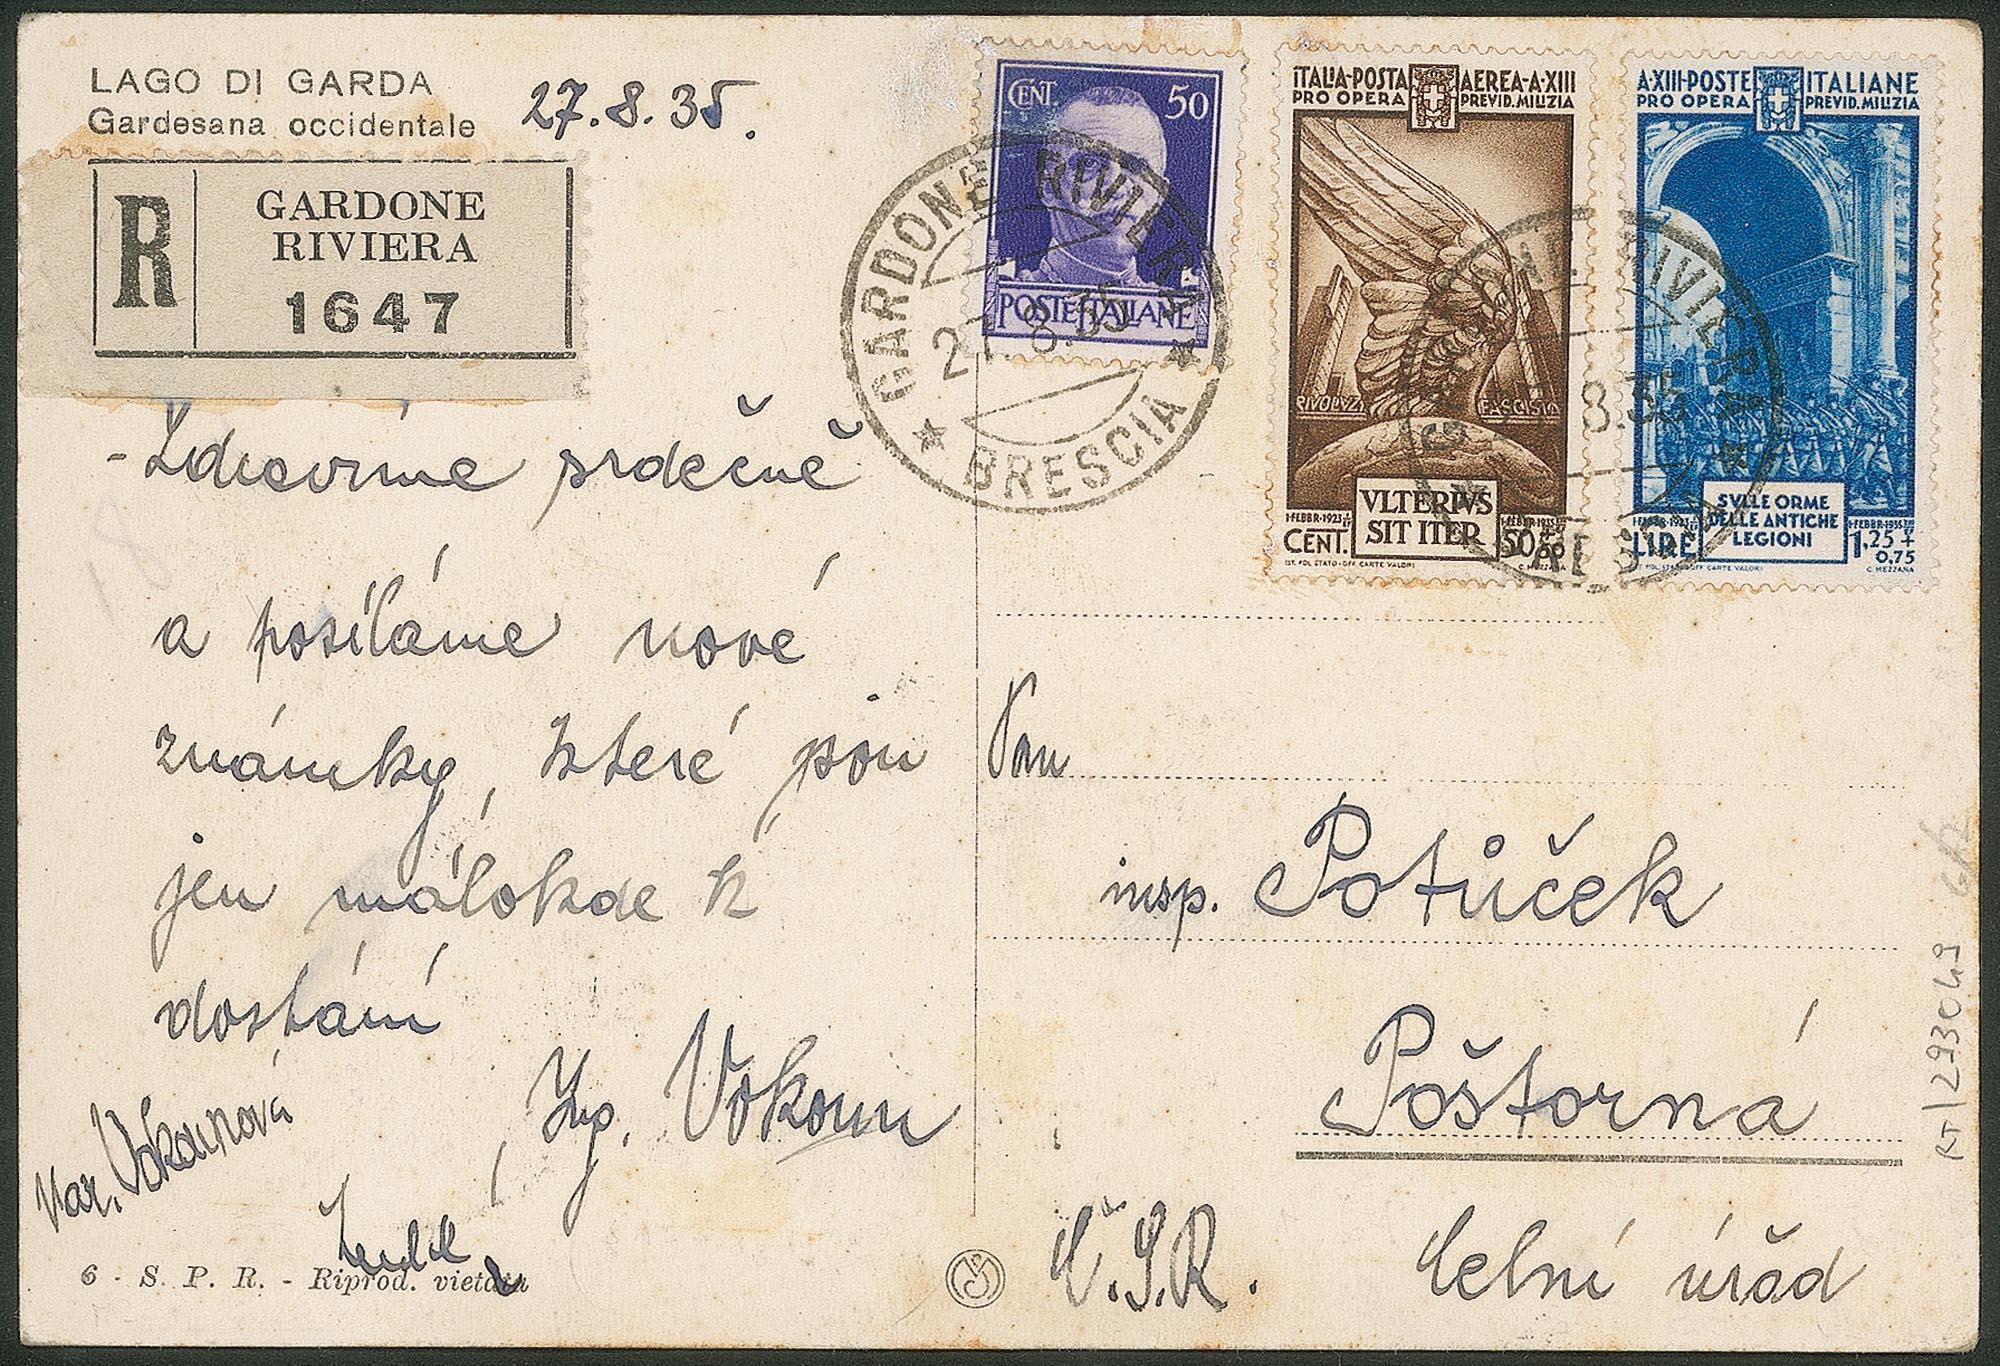 LAGO DI GARDA
Gardesana occidentale
27.8.35.
R
GARDONE
RIVIERA
1647
- Zdravíme srdečně
a posíláme nové
známky, které jsou
jen málokde k
dostání
Ing. Vokoun
Mar. Vokounová
6 - S. P. R. - Riprod. vietata
CENT. 50
POSTE ITALIANE
GARDONE RIVIERA
27.8.35
* BRESCIA *
ITALIA-POSTA AEREA-A·XIII
PRO OPERA PREVID. MILIZIA
RIVOLUZ FASCISTA
VLTERIVS
SIT ITER
1·FEBBR·1923 1·FEBBR·1935
CENT. 50+50
IST. POL. STATO·OFF. CARTE VALORI C. MEZZANA
A·XIII-POSTE ITALIANE
PRO OPERA PREVID. MILIZIA
SVLLE ORME
DELLE ANTICHE
LEGIONI
1·FEBBR·1923 1·FEBBR·1935
LIRE 1,25+
0,75
IST. POL. STATO·OFF. CARTE VALORI C. MEZZANA
GARDONE RIVIERA
8.35
* BRESCIA *
Pan
insp. Potůček
Poštorná
Č.S.R. Celní úřad
RT/293049